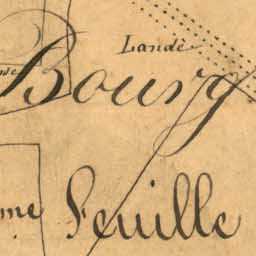 Landé
Bourg
me Feuille